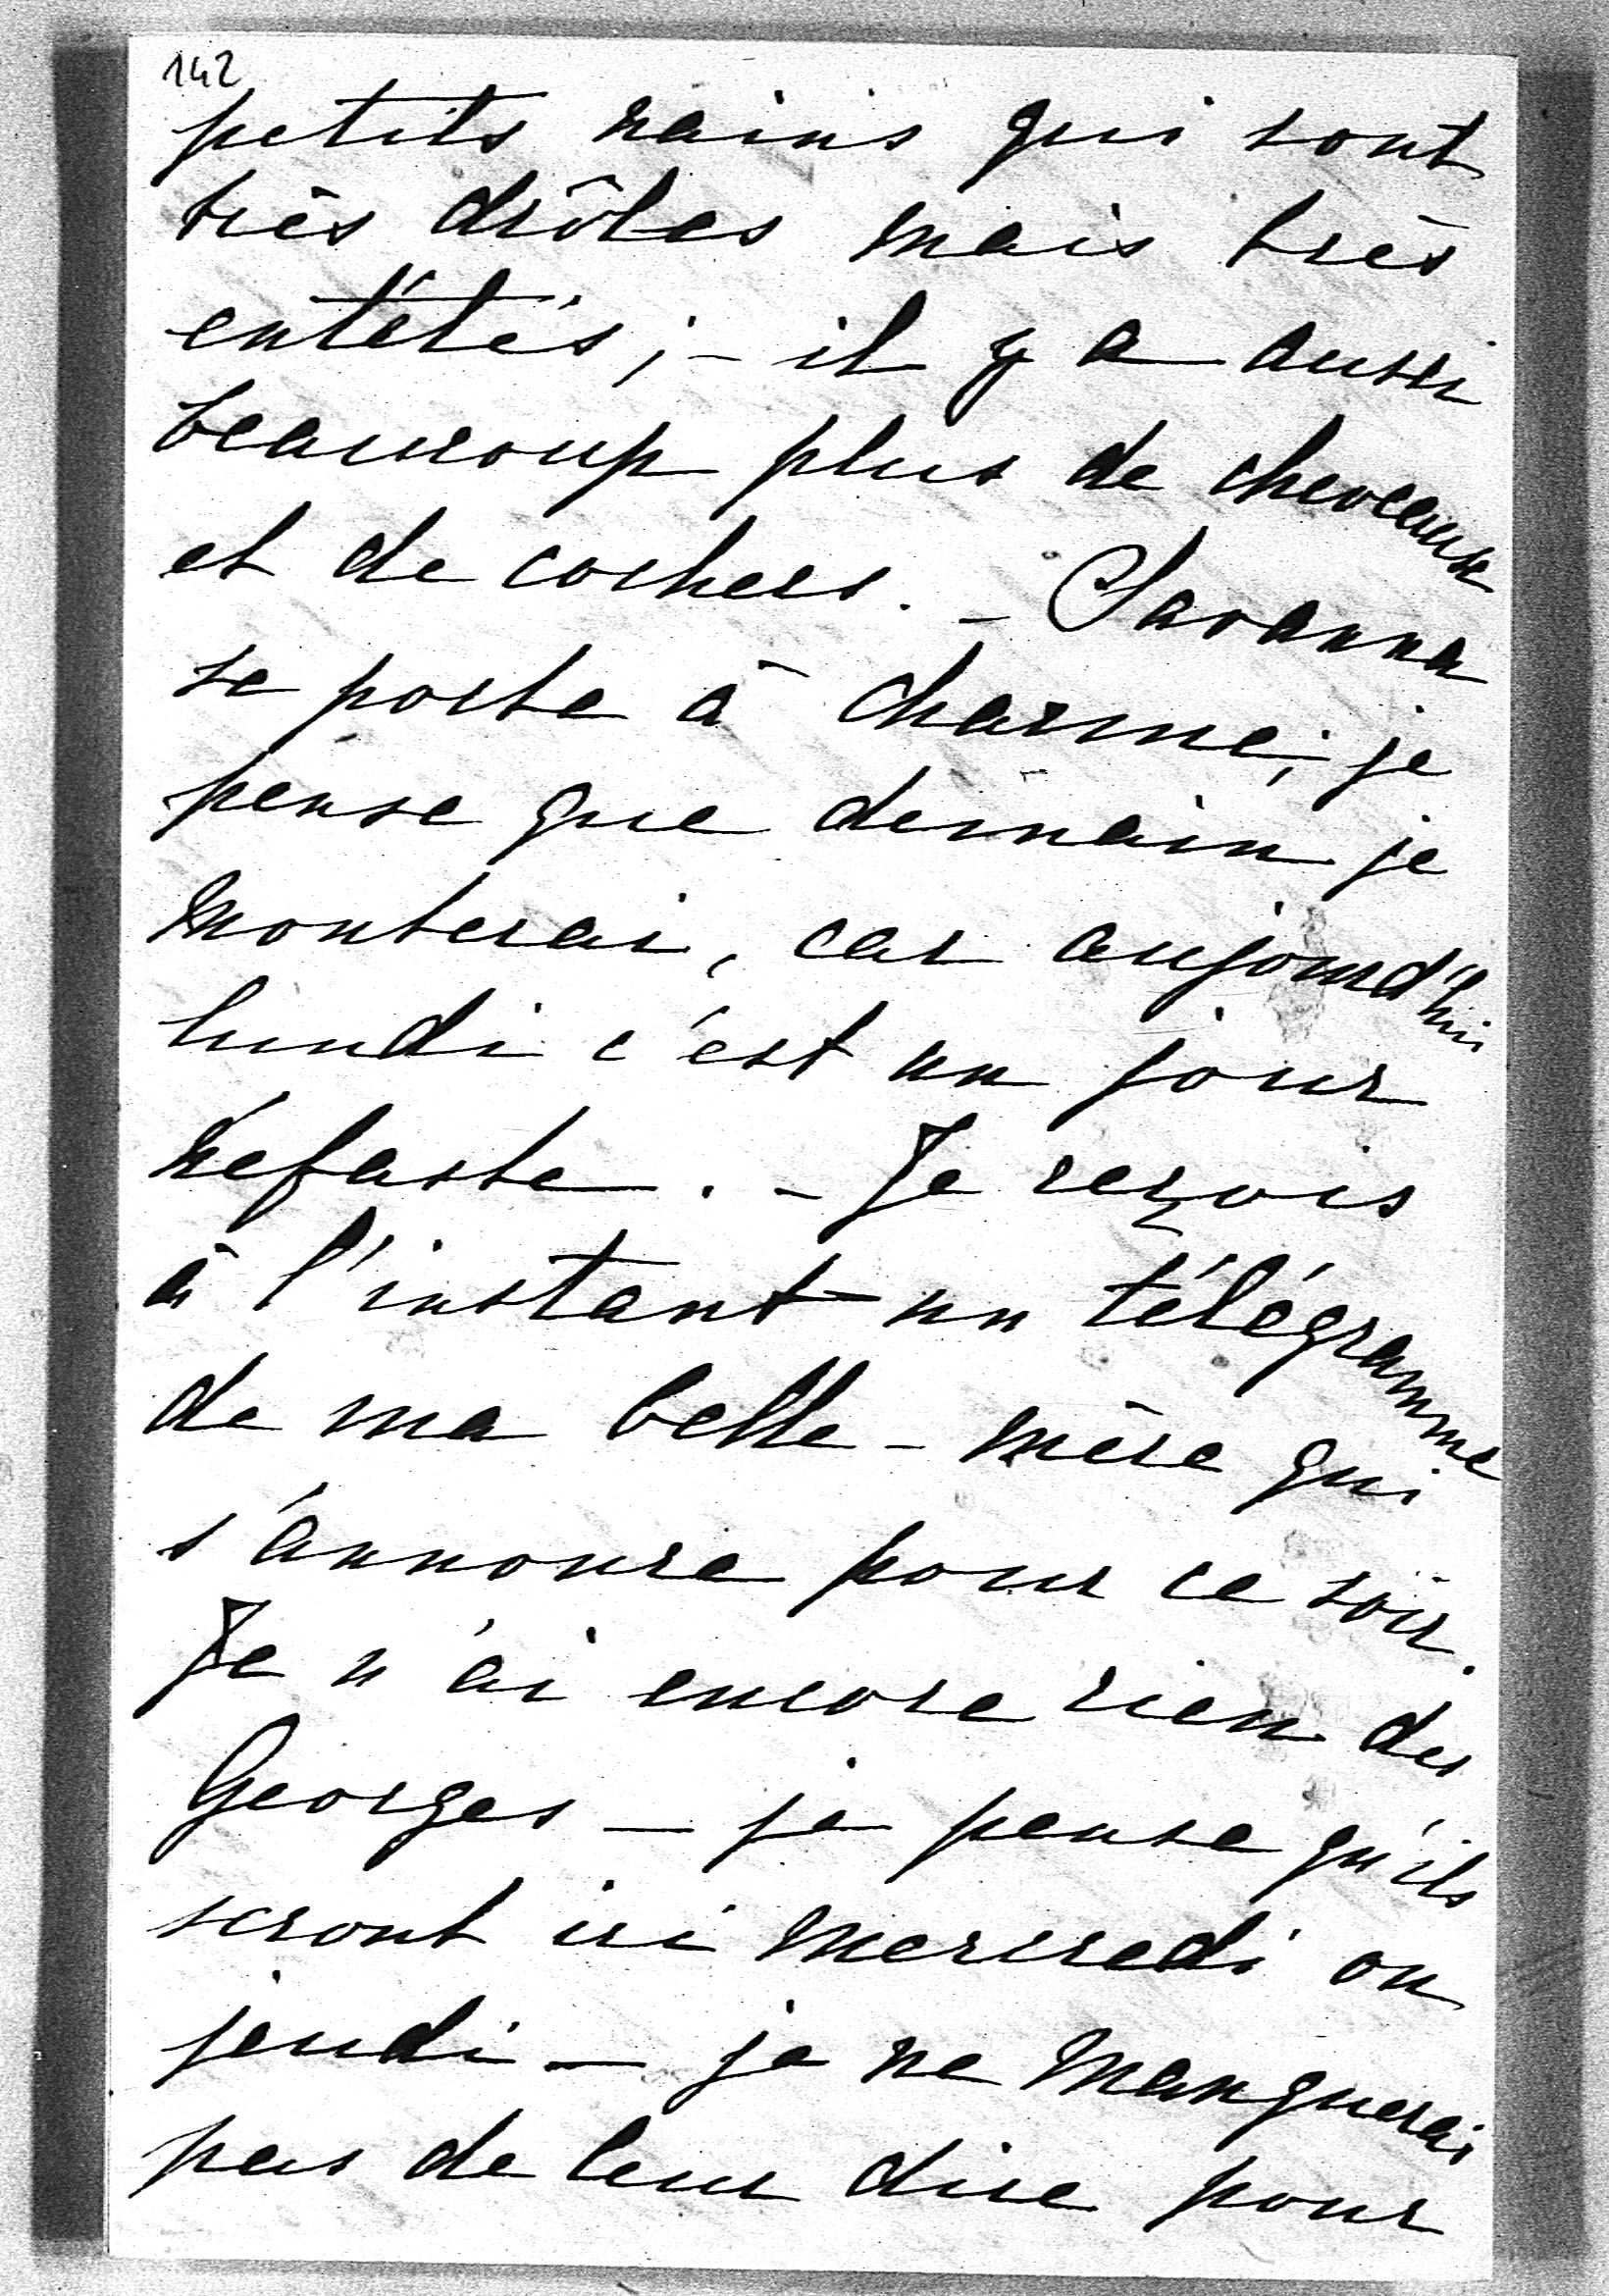 142
petits nains qui sont
très drôles mais très
entêtés ; - il y a aussi
beaucoup plus de cheveaux
et de cochers. - Savanna
se porte à charme, je
pense que demain je
monterai, car aujourd'hui
lundi c'est un jour
néfaste. - Je reçois
à l'instant un télégramme
de ma belle-mère qui
s'annonce pour ce soir.
Je n'ai encore rien des
Georges - je pense qu'ils
seront ici mercredi ou
jeudi - je ne manquerai
pas de leur dire pour